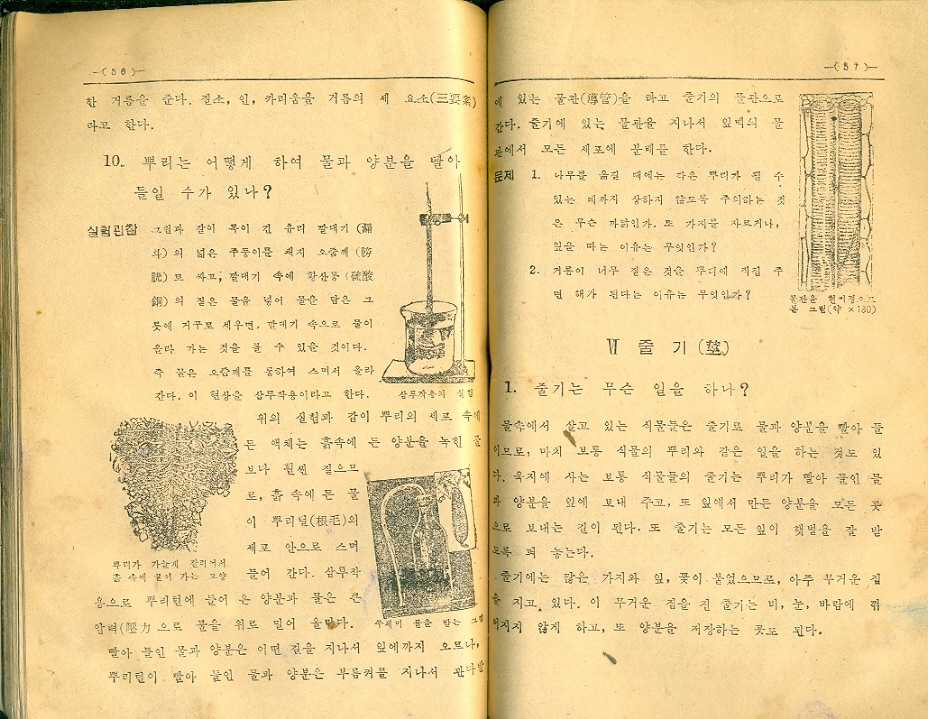 —(56)—
한 거름을 준다. 질소, 인, 카리움을 거름의 세 요소(三要素)
라고 한다.
10. 뿌리는 어떻게 하여 물과 양분을 빨아
들일 수가 있나?
실험관찰 그림과 같이 목이 긴 유리 깔대기(漏
斗)의 넓은 주둥이를 돼지 오줌깨(膀
胱)로 싸고, 깔대기 속에 황산동(硫酸
銅)의 짙은 물을 넣어 물을 담은 그
릇에 거꾸로 세우면, 깔대기 속으로 물이
올라 가는 것을 볼 수 있을 것이다.
즉 물은 오줌깨를 통하여 스며서 올라
간다. 이 현상을 삼투작용이라고 한다.
삼투작용의 실험
위의 실험과 같이 뿌리의 세포 속에
든 액체는 흙속에 든 양분을 녹힌 물
보다 훨씬 짙으므
로, 흙 속에 든 물
이 뿌리털(根毛)의
세포 안으로 스며
들어 간다. 삼투작
뿌리가 가늘게 갈리어서
흙 속에 뻗어 가는 모양
용으로 뿌리털에 들어 온 양분과 물은 큰
압력(壓力)으로 물을 위로 밀어 올린다.
수세미 물을 받는 그림
빨아 들인 물과 양분은 어떤 길을 지나서 잎에까지 오르나,
뿌리털이 빨아 들인 물과 양분은 부름켜를 지나서 관다발
—(57)—
에 있는 물관(導管)을 타고 줄기의 물관으로
간다. 줄기에 있는 물관을 지나서 잎맥의 물
관에서 모든 세포에 분배를 한다.
문제 1. 나무를 옮길 때에는 잔은 뿌리가 될 수
있는 데까지 상하지 않도록 주의하는 것
은 무슨 까닭인가. 또 가지를 자르거나,
잎을 따는 이유는 무엇인가?
2. 거름이 너무 짙은 것을 뿌리에 직접 주
면 해가 된다는 이유는 무엇인가?
물관을 현미경으로
본 그림(약 ×180)
Ⅵ 줄기(莖)
1. 줄기는 무슨 일을 하나?
물속에서 살고 있는 식물들은 줄기로 물과 양분을 빨아 들
이므로, 마치 보통 식물의 뿌리와 같은 일을 하는 것도 있
다. 육지에 사는 보통 식물들의 줄기는 뿌리가 빨아 들인 물
과 양분을 잎에 보내 주고, 또 잎에서 만든 양분을 모든 곳
으로 보내는 길이 된다. 또 줄기는 모든 잎이 햇볕을 잘 받
도록 퍼 놓는다.
줄기에는 많은 가지와 잎, 꽃이 붙었으므로, 아주 무거운 짐
을 지고 있다. 이 무거운 짐을 진 줄기는 비, 눈, 바람에 꺾
어지지 않게 하고, 또 양분을 저장하는 곳도 된다.